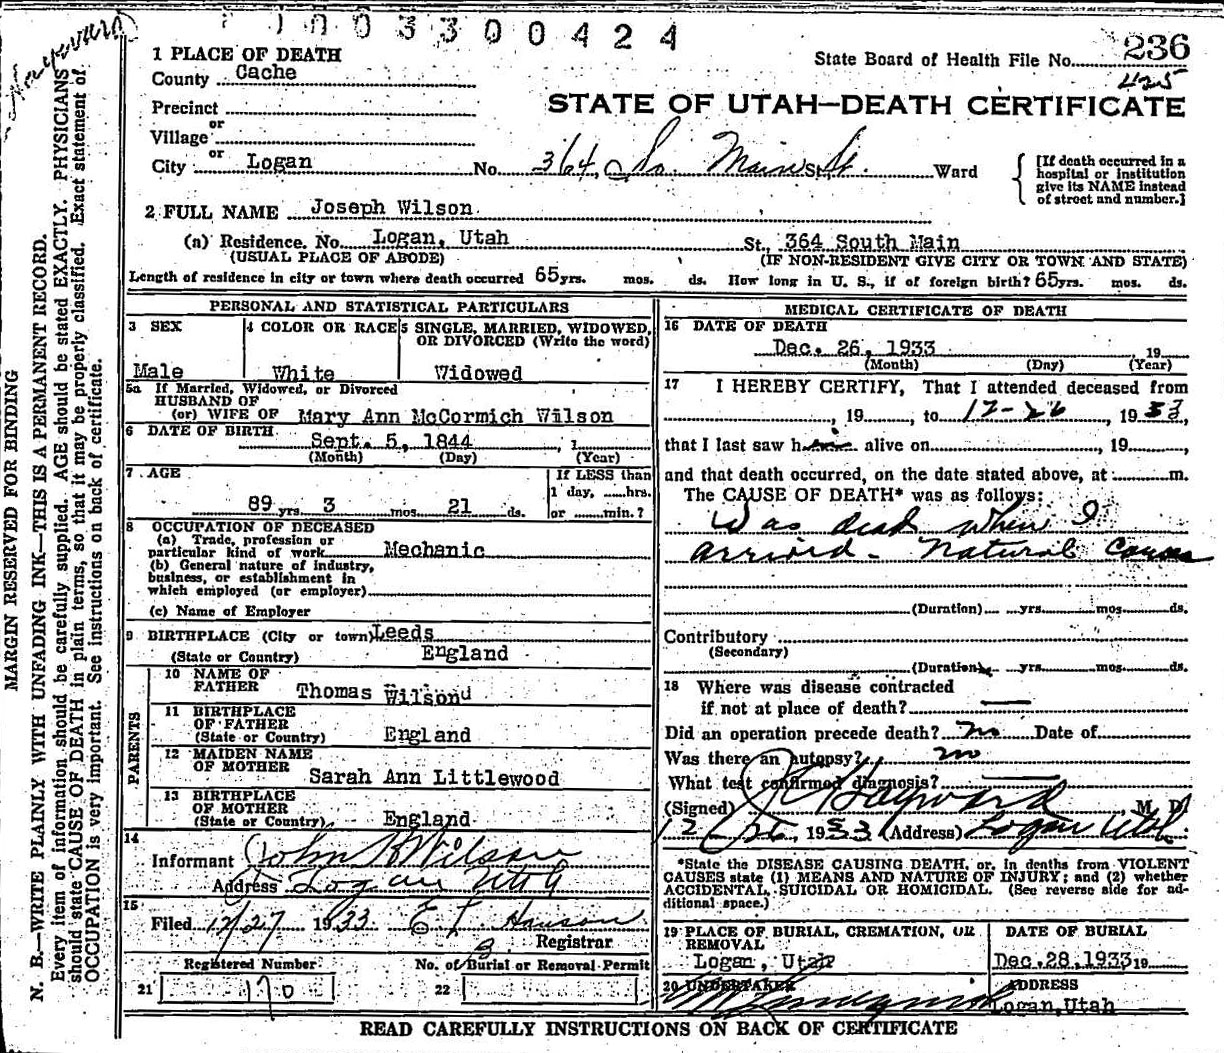 003300424
1 PLACE OF DEATH
State Board of Health File No. 236
425
County Cache
STATE OF UTAH—DEATH CERTIFICATE
Precinct
or
Village
or
City Logan No. 364 So. Main St. Ward
[If death occurred in a hospital or institution give its NAME instead of street and number.]
2 FULL NAME Joseph Wilson
(a) Residence. No. Logan, Utah St., 364 South Main
(USUAL PLACE OF ABODE) (IF NON-RESIDENT GIVE CITY OR TOWN AND STATE)
Length of residence in city or town where death occurred 65 yrs. mos. ds. How long in U. S., if of foreign birth? 65 yrs. mos. ds.
PERSONAL AND STATISTICAL PARTICULARS
3 SEX 4 COLOR OR RACE 5 SINGLE, MARRIED, WIDOWED,
OR DIVORCED (Write the word)
Male White Widowed
5a If Married, Widowed, or Divorced
HUSBAND OF
(or) WIFE OF Mary Ann McCormich Wilson
6 DATE OF BIRTH Sept. 5, 1844 1
(Month) (Day) (Year)
7 AGE If LESS than
1 day, ......hrs.
89 yrs. 3 mos. 21 ds. or ......min.?
8 OCCUPATION OF DECEASED
(a) Trade, profession or
particular kind of work Mechanic
(b) General nature of industry,
business, or establishment in
which employed (or employer)
(c) Name of Employer
9 BIRTHPLACE (City or town) Leeds
(State or Country) England
PARENTS
10 NAME OF
FATHER Thomas Wilson
11 BIRTHPLACE
OF FATHER
(State or Country) England
12 MAIDEN NAME
OF MOTHER Sarah Ann Littlewood
13 BIRTHPLACE
OF MOTHER
(State or Country) England
14
Informant John R Wilson
Address Logan Utah
15
Filed 12/27 1933 E T Hanson
B. Registrar
Registered Number No. of Burial or Removal Permit
21 170 22
MEDICAL CERTIFICATE OF DEATH
16 DATE OF DEATH
Dec. 26, 1933 19
(Month) (Day) (Year)
17 I HEREBY CERTIFY, That I attended deceased from
, 19 , to 12-26, 1933,
that I last saw him alive on , 19
and that death occurred, on the date stated above, at m.
The CAUSE OF DEATH* was as follows:
Was dead when I
arrived - Natural Causes
(Duration) yrs. mos. ds.
Contributory
(Secondary)
(Duration) yrs. mos. ds.
18 Where was disease contracted
if not at place of death? —
Did an operation precede death? no Date of
Was there an autopsy? no
What test confirmed diagnosis? —
(Signed) Hayward M. D.
12/26, 1933 (Address) Logan Utah
*State the DISEASE CAUSING DEATH, or, in deaths from VIOLENT
CAUSES state (1) MEANS AND NATURE OF INJURY; and (2) whether
ACCIDENTAL, SUICIDAL OR HOMICIDAL. (See reverse side for ad-
ditional space.)
19 PLACE OF BURIAL, CREMATION, OR
REMOVAL DATE OF BURIAL
Logan, Utah Dec. 28, 1933 19
20 UNDERTAKER ADDRESS
Logan, Utah
READ CAREFULLY INSTRUCTIONS ON BACK OF CERTIFICATE
MARGIN RESERVED FOR BINDING
N. B.—WRITE PLAINLY WITH UNFADING INK—THIS IS A PERMANENT RECORD.
Every item of information should be carefully supplied. AGE should be stated EXACTLY. PHYSICIANS
should state CAUSE OF DEATH in plain terms, so that it may be properly classified. Exact statement of
OCCUPATION is very important. See instructions on back of certificate.